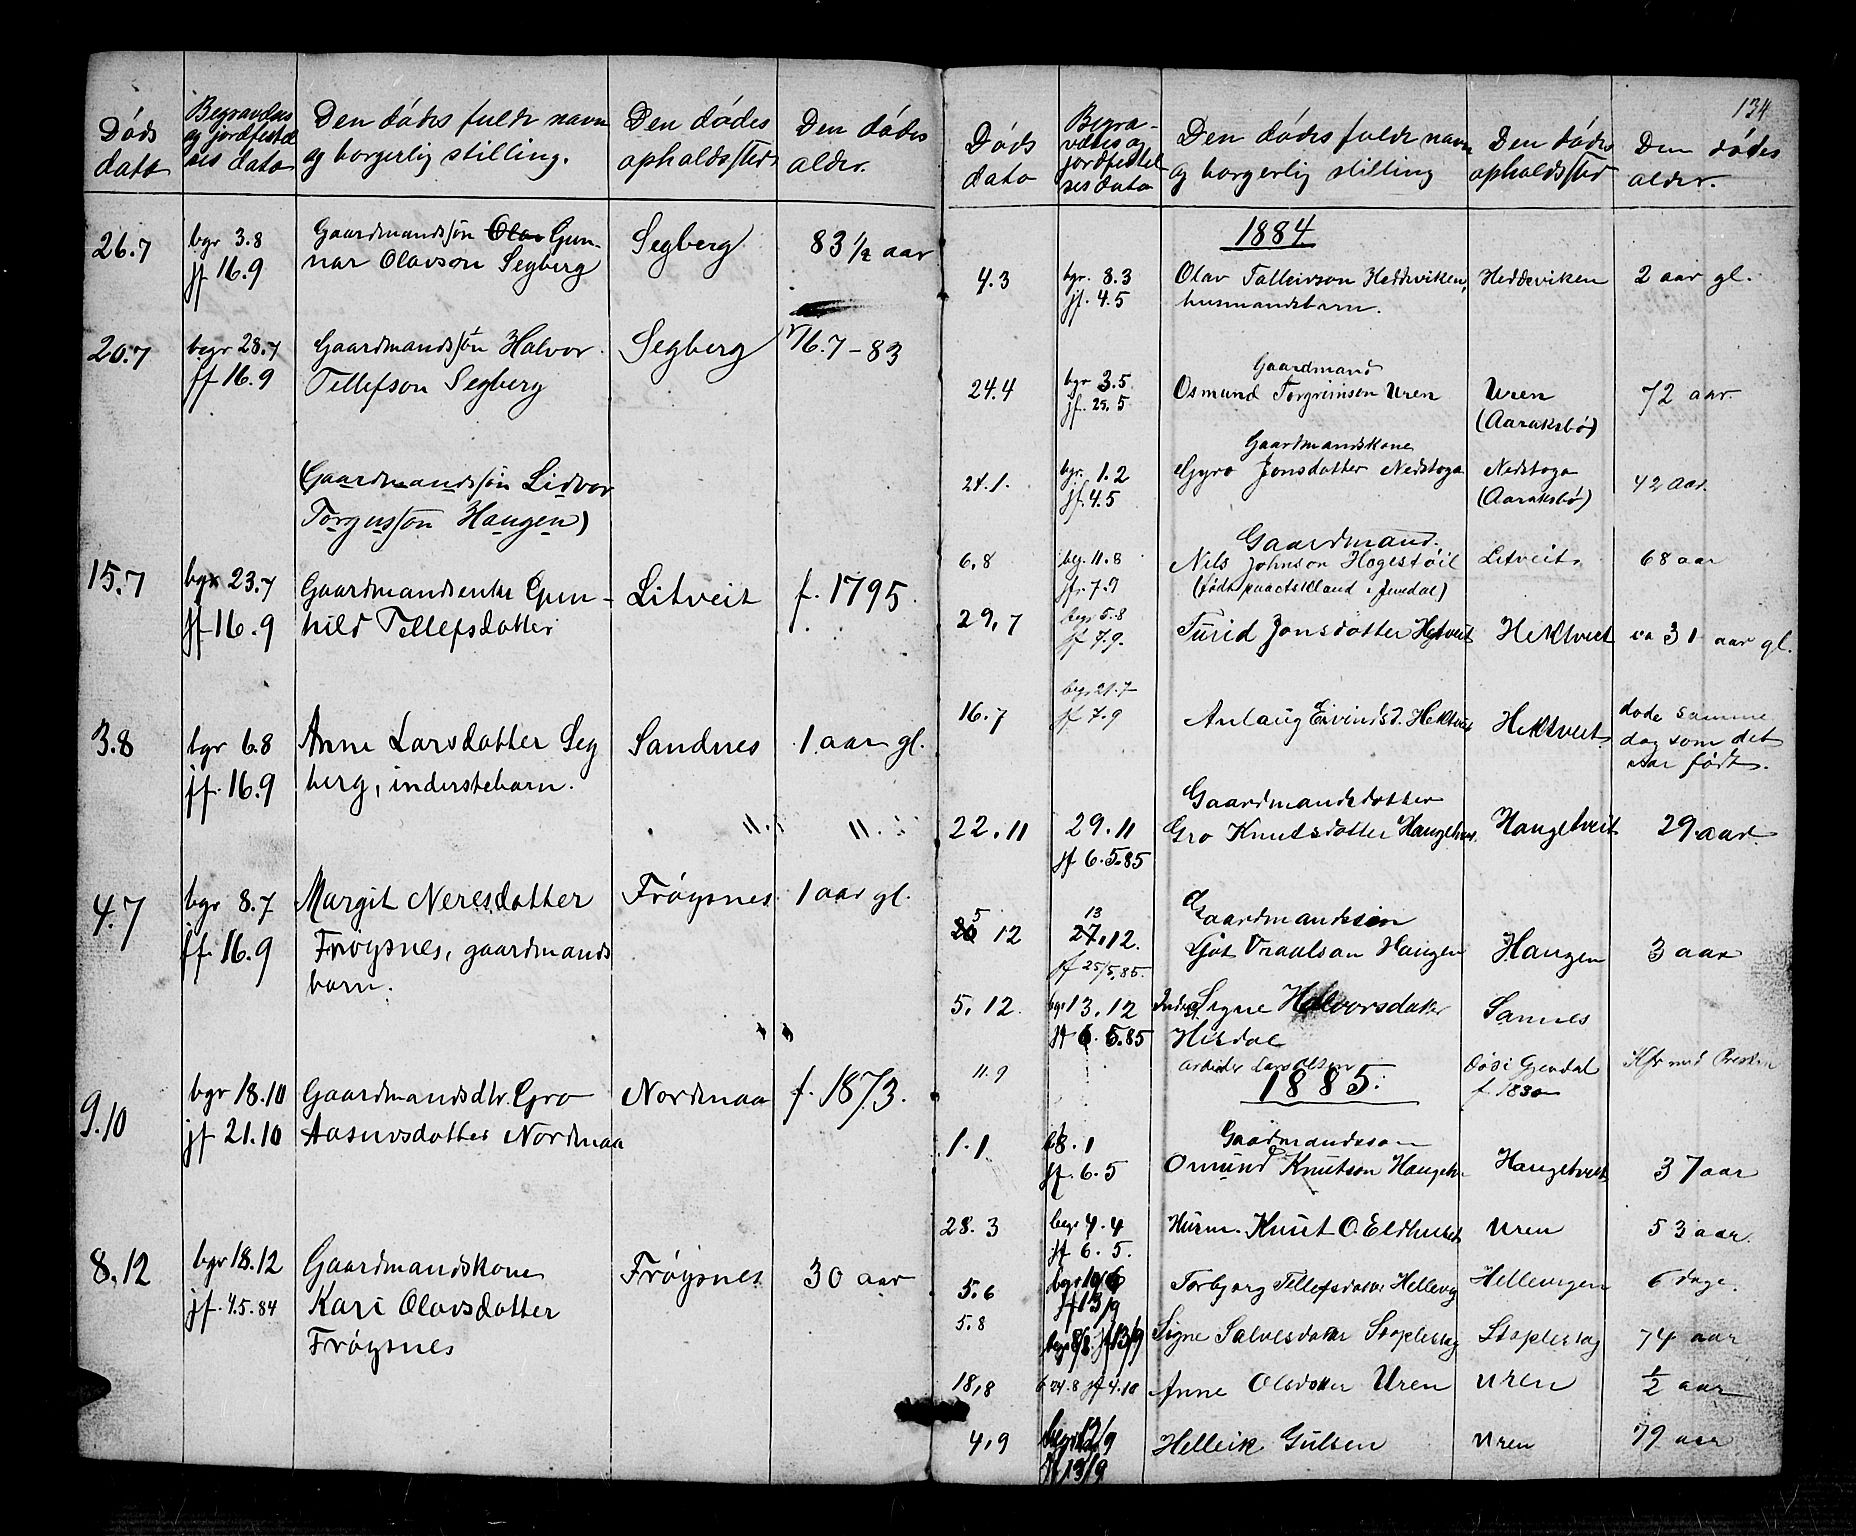 Døds
dato
Begravelses
og jordfestel
ses dato
Den dødes fulde navn
og borgerlig stilling.
Den dødes
opholdssted
Den dødes
alder.
26.7
bgr 3.8
jf 16.9
Gaardmandssøn Olav Gun-
nar Olavson Segberg
Segberg
83 1/2 aar
20.7
begr 28.7
jf 16.9
Gaardmandssøn Halvor
Tellefson Segberg
Segberg
16.7-83
(Gaardmandssøn Lidvor
Torgusson Haugen)
15.7
bgr 23.7
jf 16.9
Gaardmandsenke Gun-
hild Tellefsdatter
Litveit
f. 1795.
3.8
bgr 6.8
jf. 16.9
Anne Larsdatter Seg
berg, inderstebarn.
Sandnes
1 aar gl.
4.7
bgr 8.7
jf. 16.9
Margit Neresdatter
Frøysnes, gaardmands
barn.
Frøysnes
1 aar gl.
9.10
bgr 18.10
jf 21.10
Gaardmandsdtr. Gro
Aasuvsdatter Nordmaa
Nordmaa
f. 1873.
8.12
bgr 18.12
jf. 4.5.84
Gaardmandskone
Kari Olavsdatter
Frøysnes
Frøysnes
30 aar
134
Døds
dato
Begra-
velses og
jordfestel
ses dato
Den dødes fulde navn
og borgerlig stilling
Den dødes
opholdssted
Den dødes
alder.
1884
4.3
bgr. 8.3
jf. 4.5
Olav Talleivson Heddeviken,
husmandsbarn.
Heddeviken
2 aar gl.
24.4
bgr 3.5
jf. 25.5
Gaardmand
Osmund Torgrimsen Uren
Uren
(Aaraksbø)
72 aar.
24.1.
bgr. 1.2
jf. 4.5
Gaardmandskone
Gyro Jonsdatter Nedstoga
Nedstoga
(Aaraksbø)
42 aar
6.8
beg. 11.8
jf. 7.9
Gaardmand.
Nils Johnson Hogestøil
(født paa Kland i Jendal)
Litveit
68 aar
29.7
begr 5.8
jf 7.9.
Turid Jonsdatter Hektveit
Hektveit
ca 31 aar gl.
16.7
begr 21.7
jf 7.9
Anlaug Eivindsd. Hektveit
Hektveit
døde samme
dag som det
var født.
22.11
29.11
jf 6.5.85
Gaardmandsdatter
Gro Knutsdatter Haugetveit
Haugetveit
29 aar
5
20 12
13
27.12.
jf 25/5.85.
Gaardmandssøn
Gjut Draalson Haugen
Haugen
3 aar
5.12.
bgr 13.12
jf 6.5.85
Inders. Signe Halvorsdatter
Hisdal
Sannes
11.9
Arbeider Lars Olsen
Døsi Gjendal
f. 1830
Kfr med Presten
1885.
1.1
b 8.1
jf. 6.5
Gaardmandssøn
Omund Knutson Haugetv.
Haugetveit
37 aar
28.3
begr 4.4
jf 6.5.
Husm. Knut O. Eldhuset
Uren
53 aar.
5.6
bgr 10/6
jf 13/9
Torbjørg Tellefsdatter Hellevig
Hellevigen
6 dage.
5.8
jf 13/9
Signe Salvesdatter Stoplestag
Stoplestag
74 aar
18.8
b 24.8 jf 4.10
Anne Olsdatter Uren
Uren
1/2 aar
4.9
begr 12/9
jf 13/9
Helleik Gulsen
Uren
79 aar